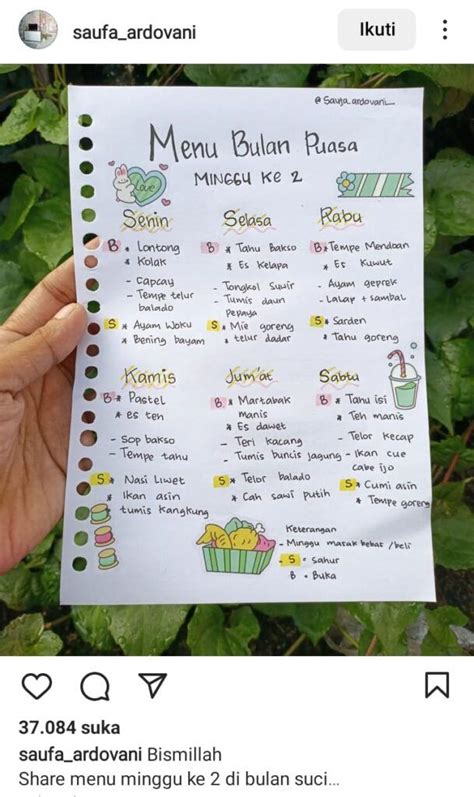 saufa_ardovani
Ikuti
@Saufa_ardovani_
Menu Bulan Puasa
MINGGU KE 2
Love
Senin
B * Lontong
* Kolak
- Capcay
- Tempe telur
balado
S * Ayam Woku
* Bening bayam
Selasa
B * Tahu Bakso
* Es Kelapa
- Tongkol Suwir
- Tumis daun
Pepaya
S * Mie goreng
* telur dadar
Rabu
B * Tempe Mendoan
* Es Kuwut
- Ayam geprek
- Lalap + sambal
S * Sarden
* Tahu goreng
Kamis
B * Pastel
* es teh
- Sop bakso
- Tempe tahu
S * Nasi Liwet
* Ikan asin
tumis kangkung
Jum'at
B * Martabak
manis
* Es dawet
- Teri kacang
- Tumis buncis jagung
S * Telor balado
* Cah sawi putih
Sabtu
B * Tahu isi
* Teh manis
- Telor kecap
- Ikan cue
cabe ijo
S * Cumi asin
* Tempe goreng
Keterangan
- Minggu masak bebas /beli
- S = Sahur
B = Buka
37.084 suka
saufa_ardovani Bismillah
Share menu minggu ke 2 di bulan suci...